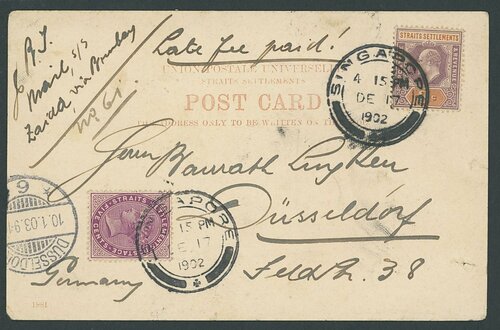 Late fee paid!
Mail, s/s
Zaida, via Bombay
No. 61.
UNION POSTALE UNIVERSELLE
STRAITS SETTLEMENTS
POST CARD
THE ADDRESS ONLY TO BE WRITTEN ON THIS
STRAITS SETTLEMENTS
POSTAGE & REVENUE
SINGAPORE
4 15 PM
DE 17
1902
Herrn Baurath
Düsseldorf
Feldstr. 38
Germany
STRAITS SETTLEMENTS
SINGAPORE
15 PM
DE 17
1902
DÜSSELDORF
10.1.03.9
6
1881